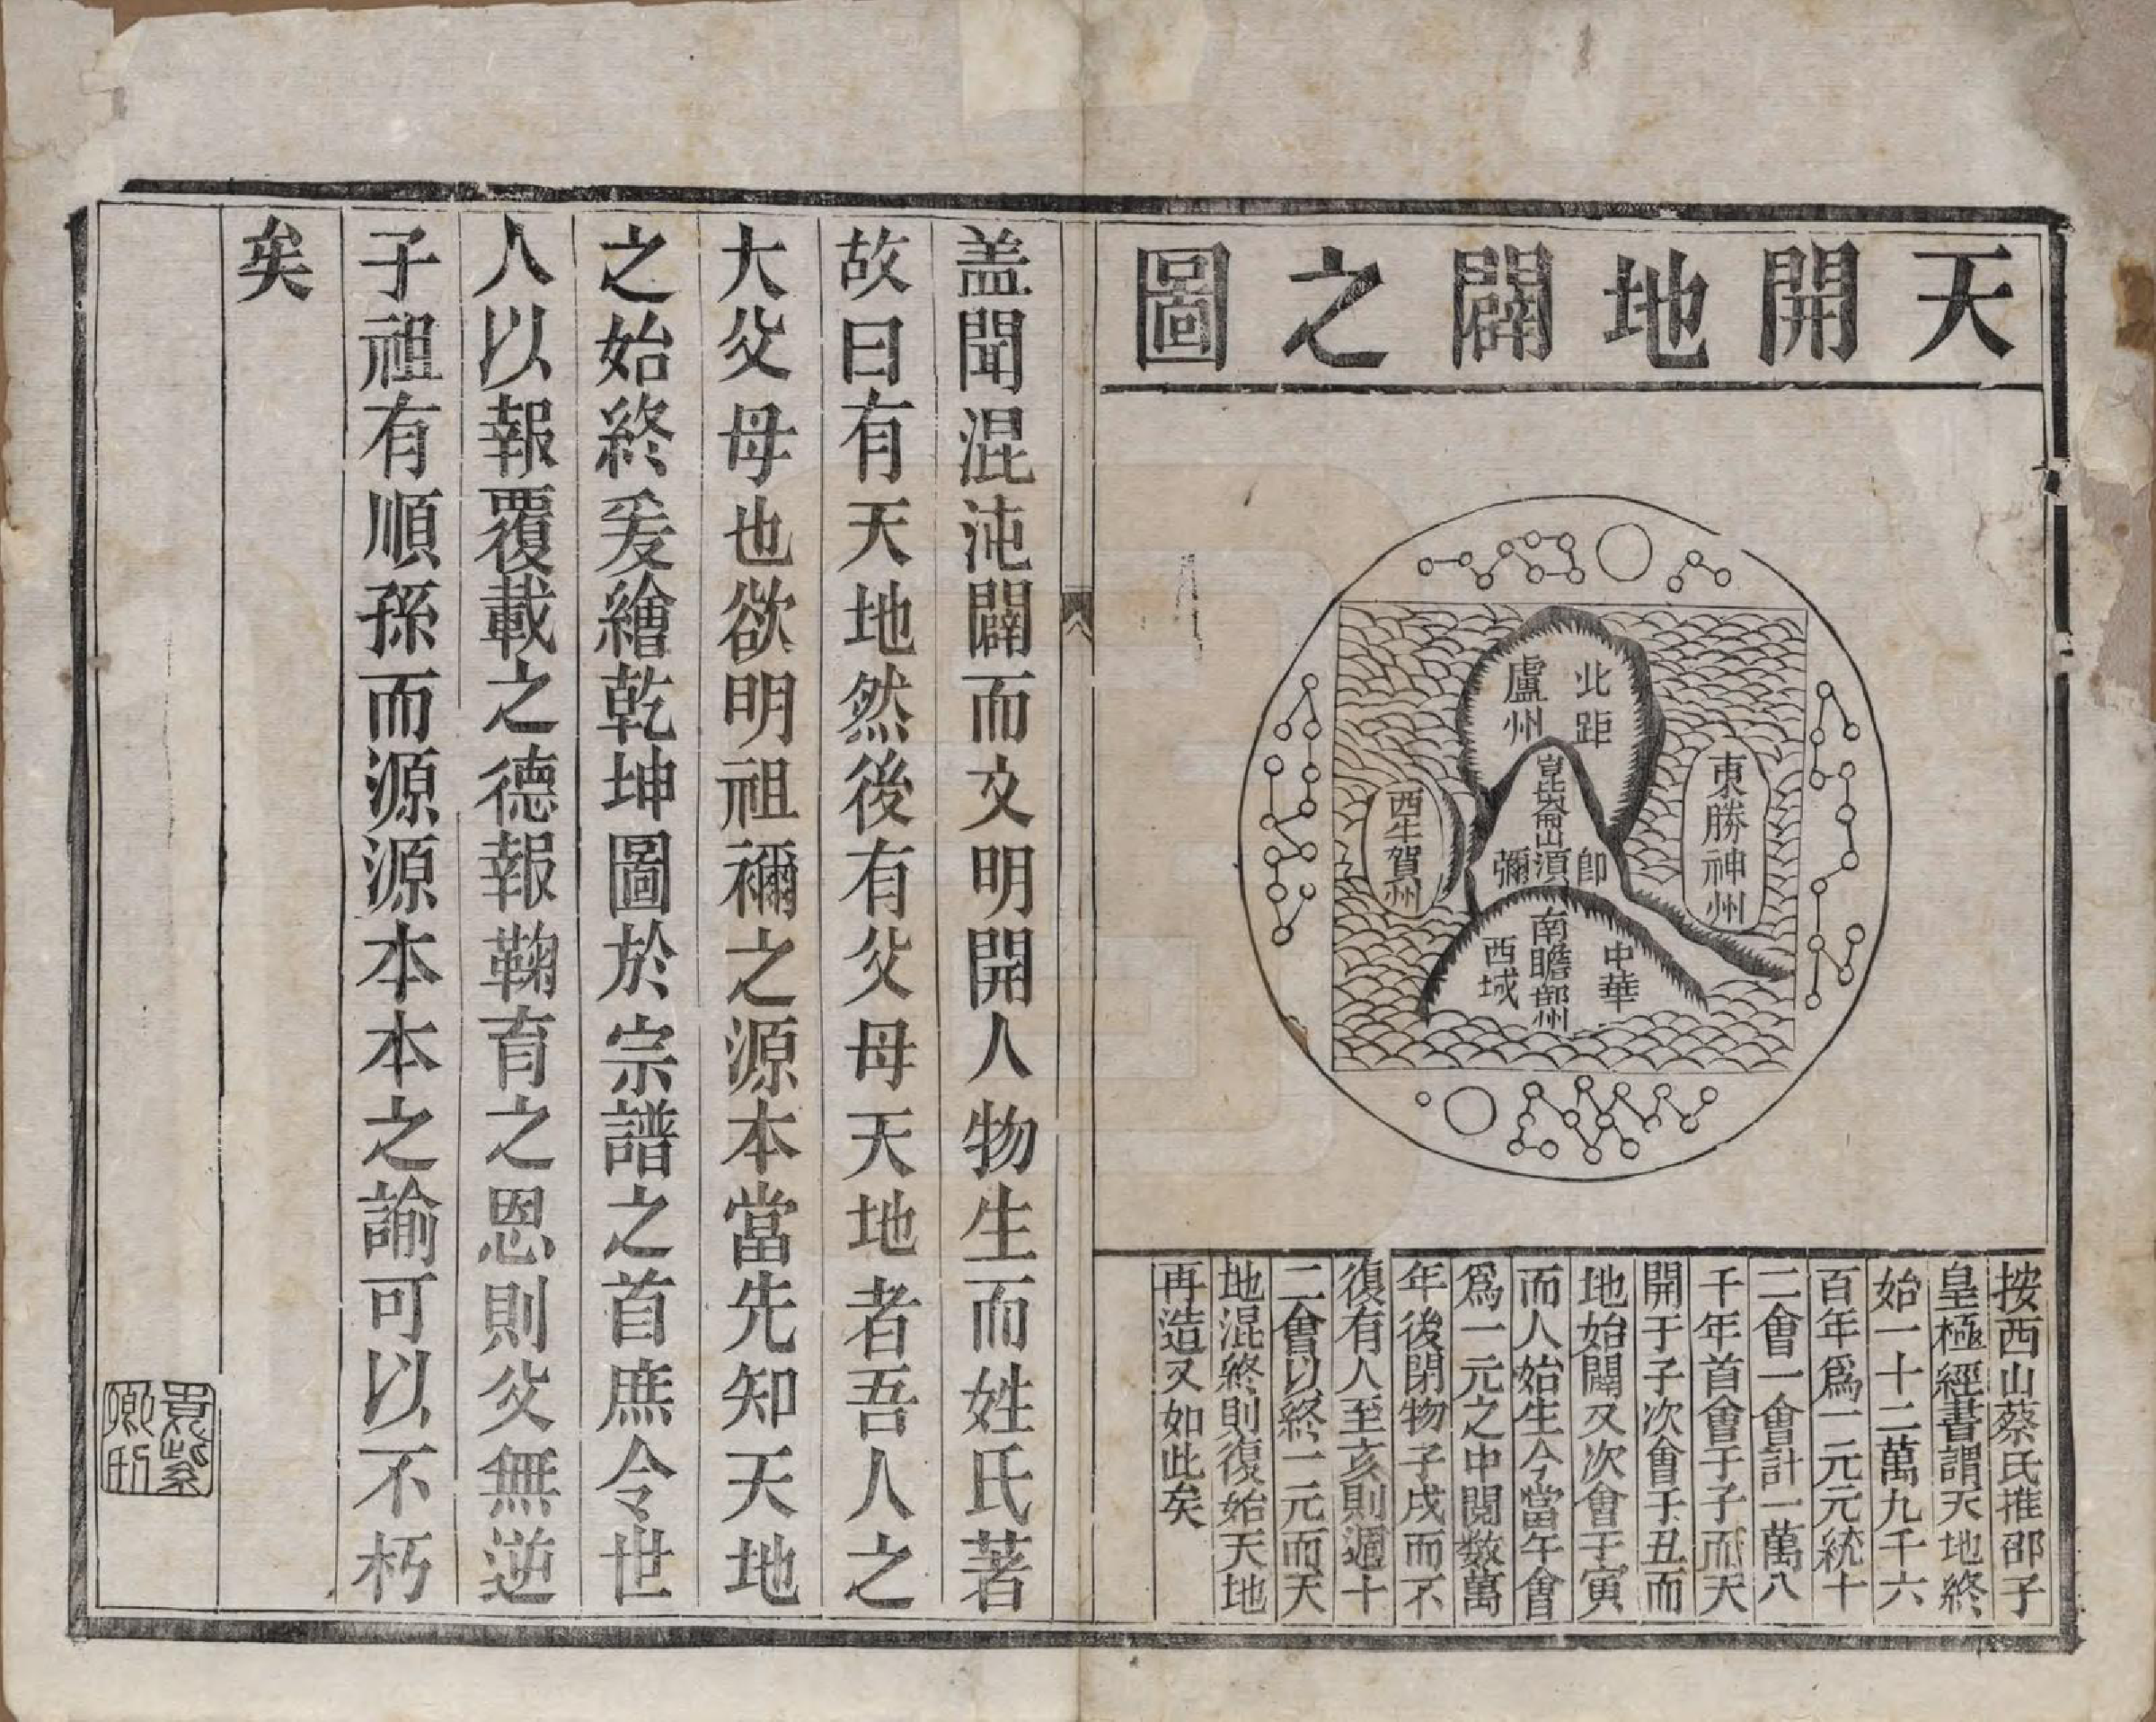 天開地闢之圖
北距
盧州
崑崙山
即須彌
東勝神州
西牛賀州
中華
南瞻部州
西域
按西山蔡氏推邵子
皇極經書謂天地終
始一十二萬九千六
百年為一元元統十
二會一會計一萬八
千年首會于子而天
開于子次會于丑而
地始闢又次會于寅
而人始生今當午會
爲一元之中閱数萬
年後閉物子戌而不
復有人至亥則週十
二會以終一元而天
地混終則復始天地
再造又如此矣
盖聞混沌闢而文明開人物生而姓氏著
故曰有天地然後有父母天地者吾人之
大父母也欲明祖禰之源本當先知天地
之始終爰繪乾坤圖於宗譜之首庶令世
人以報覆載之德報鞠育之恩則父無逆
子祖有順孫而源源本本之諭可以不朽
矣